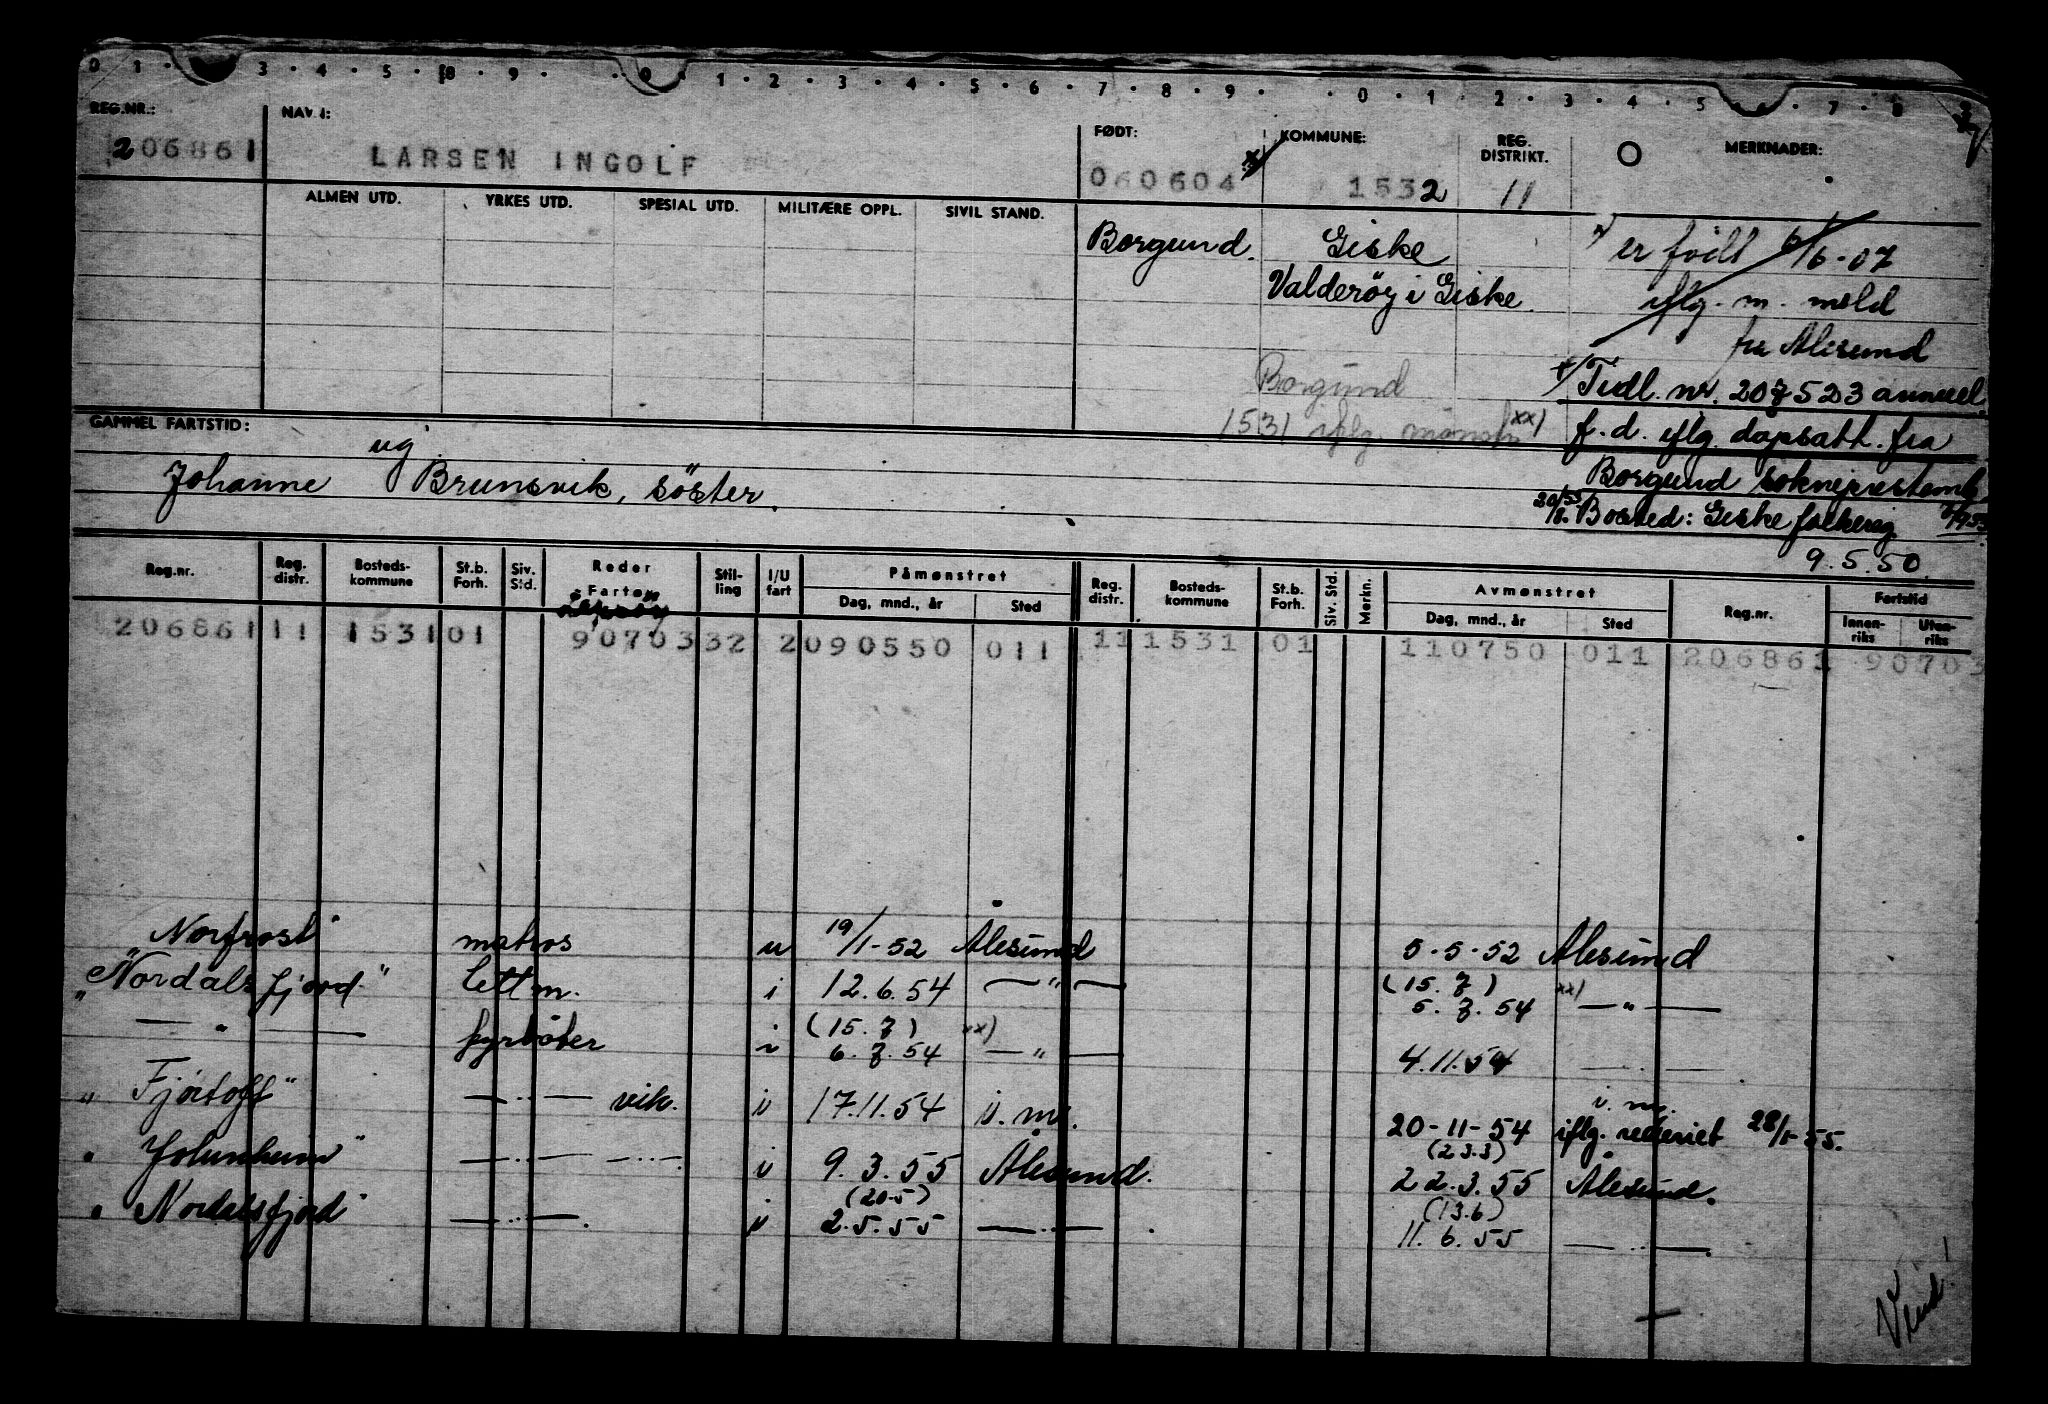 0 1 · 3 · 4 · 5 · 8 · 9 · 0 · 1 · 2 · 3 · 4 · 5 · 6 · 7 · 8 · 9 · 0 · 1 · 2 · 3 · 4 · 5 · 7 · 8
REG.NR.: NAVN: FØDT: KOMMUNE: REG. DISTRIKT. MERKNADER:
206861 LARSEN INGOLF 060604 x) 1532 11
ALMEN UTD. YRKES UTD. SPESIAL UTD. MILITÆRE OPPL. SIVIL STAND.
Borgund. Giske er født 6/6-07
Valderöy i Giske. iflg. m. meld
fra Ålesund
Borgund x/ Tidl. nr. 207523 annull.
1531 iflg. mønstr. xx) f.d. iflg. dåpsatt. fra
GAMMEL FARTSTID:
ug
Johanne Brunsvik, söster. Borgund sokneprestemb.
Bosted: Giske folkereg
9.5.50
Reg.nr. Reg. distr. Bosteds-kommune St.b. Forh. Siv. Std. Reder Fartøy Stil-ling I/U fart Påmønstret Dag, mnd., år Sted Reg. distr. Bosteds-kommune St.b. Forh. Siv. Std. Merkn. Avmønstret Dag, mnd., år Sted Reg.nr. Fartstid Innen-riks Uten-riks
206861 11 1531 01 90703 32 2 090550 011 11 1531 01 110750 011 206861 90703
"Norfrost" matros u 19/1-52 Ålesund 5-5-52 Ålesund
"Nordalsfjord" lettm. i 12.6.54 — " — (15.7) 5.7.54 xx) — " —
— " — fyrböter i (15.7) 6.7.54 xx) — " — 4.11.54 —
"Fjörtoft" — " — vik. i 17.11.54 i.m. 20-11-54 i.m. iflg. rederiet 28/1-55.
" — " — — " — i 9.3.55 Ålesund. (23.3) 22.3.55 Ålesund.
"Nordalsfjord" — " — i (20.5) 2.5.55 — " — (13.6) 11.6.55 — " —